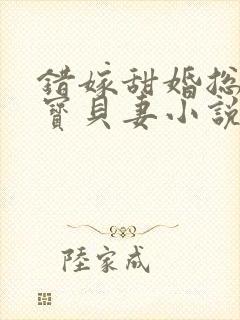 錯嫁甜婚總
寶貝妻小說
陸家成